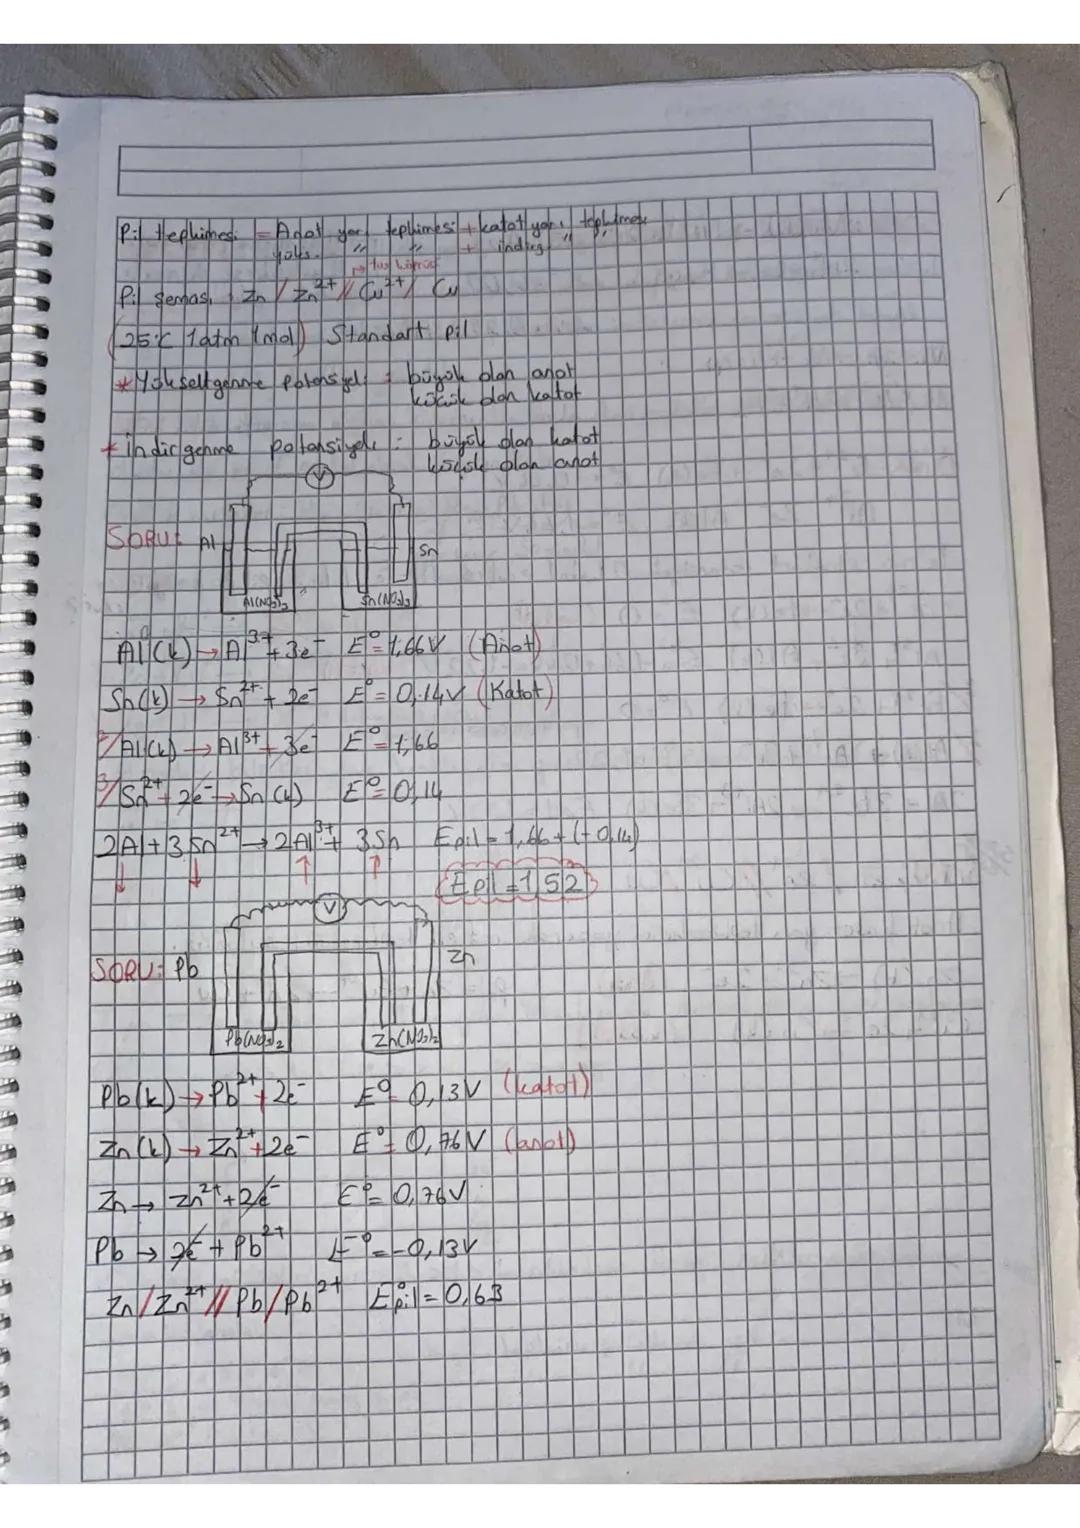 Pil tephimesi = Anot yarı tephimesi + katot yarı tephimesi
yüks. " " + indirg " "
→ tuz köprüsü
Pil şeması Zn / Zn²⁺ // Cu²⁺ / Cu
(25°C 1atm 1mol) Standart pil
* Yükseltgenme Potansiyeli : büyük olan anot
küçük olan katot
* İndirgenme potansiyeli : büyük olan katot
küçük olan anot
V
SORU: Al Sn
Al(NO₃)₃ Sn(NO₃)₂
Al(k) → Al³⁺ + 3e⁻ E° = 1,66V (Anot)
Sn(k) → Sn²⁺ + 2e⁻ E° = 0,14V (Katot)
2/ Al(k) → Al³⁺ + 3e⁻ E° = 1,66
3/ Sn²⁺ + 2e⁻ → Sn(k) E° = 0,14
2Al + 3Sn²⁺ → 2Al³⁺ + 3Sn Epil = 1,66 + (-0,14)
Epil = 1,52
V
SORU: Pb Zn
Pb(NO₃)₂ Zn(NO₃)₂
Pb(k) → Pb²⁺ + 2e⁻ E° = 0,13V (katot)
Zn(k) → Zn²⁺ + 2e⁻ E° = 0,76V (anot)
Zn → Zn²⁺ + 2e⁻ E° = 0,76V
Pb → 2e⁻ + Pb²⁺ E° = -0,13V
Zn / Zn²⁺ // Pb / Pb²⁺ E°pil = 0,63